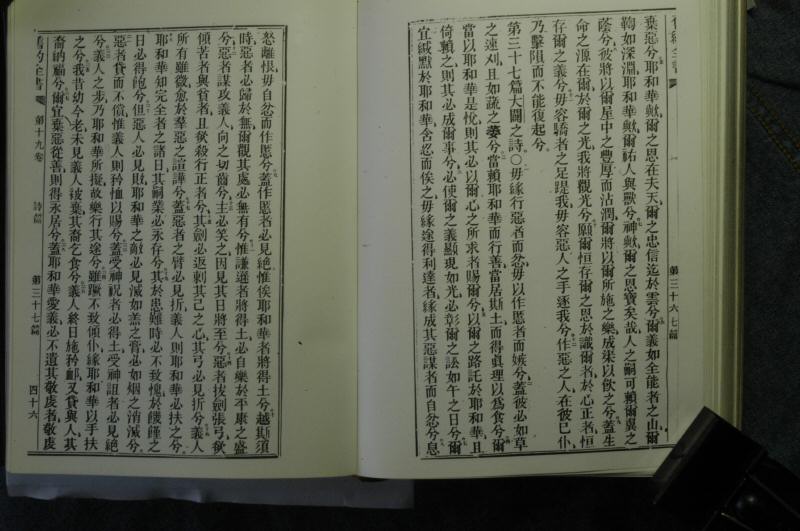 第三十六七篇
棄惡兮耶和華歟爾之恩在夫天爾之忠信迄於雲兮爾義如全能者之山爾
鞫如深淵耶和華歟爾祐人與獸兮神歟爾之恩寶矣哉人之嗣可賴爾翼之
蔭兮彼將以爾屋中之豐厚而沾潤爾將以爾所施之樂成渠以飲之兮蓋生
命之源在於爾於爾之光我將觀光兮願爾恒存爾之恩於識爾者於心正者恒
存爾之義兮毋容驕者之足踶我毋容惡人之手逐我兮作惡之人在彼已仆
乃擊隕而不能復起兮
第三十七篇大闢之詩〇毋緣行惡者而忿毋以作慝者而嫉兮蓋彼必如草
之速刈且如蔬之萎兮當賴耶和華而行善當居斯土而得眞理以爲食兮爾
當以耶和華是悅則其必以爾心之所求者賜爾兮以爾之路託於耶和華且
倚賴之則其必成爾事兮必使爾之義顯現如光必彰爾之訟如午之日兮爾
宜緘默於耶和華含忍而俟之毋緣途得利達者緣成其惡謀者而自忿兮息
怒離恨毋自忿而作慝兮蓋作慝者必見絕惟俟耶和華者將得土兮越斯須
時惡者必歸於無爾觀其處必無有兮惟謙遜者將得土必自樂於平康之盛
兮惡者謀攻義人向之切齒兮主必笑之因見其日將至兮惡者拔劍張弓欲
傾苦者與貧者且欲殺行正者兮其劍必返刺其己之心其弓必見折兮義人
所有雖微愈於羣惡之諠譁兮蓋惡者之臂必見折義人則耶和華必扶之兮
耶和華知完全者之諸日其嗣業必永存兮其於患難時必不致愧於饑饉之
日必得飽兮但惡人必見敗耶和華之敵必見滅如羔之膏必如烟之消滅兮
惡者貸而不償惟義人則矜恤以賜兮蓋受神祝者必得土受神詛者必見絕
兮義人之步乃耶和華所擬故樂行其途兮雖蹶不致傾仆緣耶和華以手扶
之兮我昔幼今老未見義人被棄其裔乞食兮義人終日施矜卹又貸與人其
裔訥福兮爾宜棄惡從善則得永居兮蓋耶和華愛義必不遺其敬虔者敬虔
第十九卷 詩篇 第三十七篇 四十六